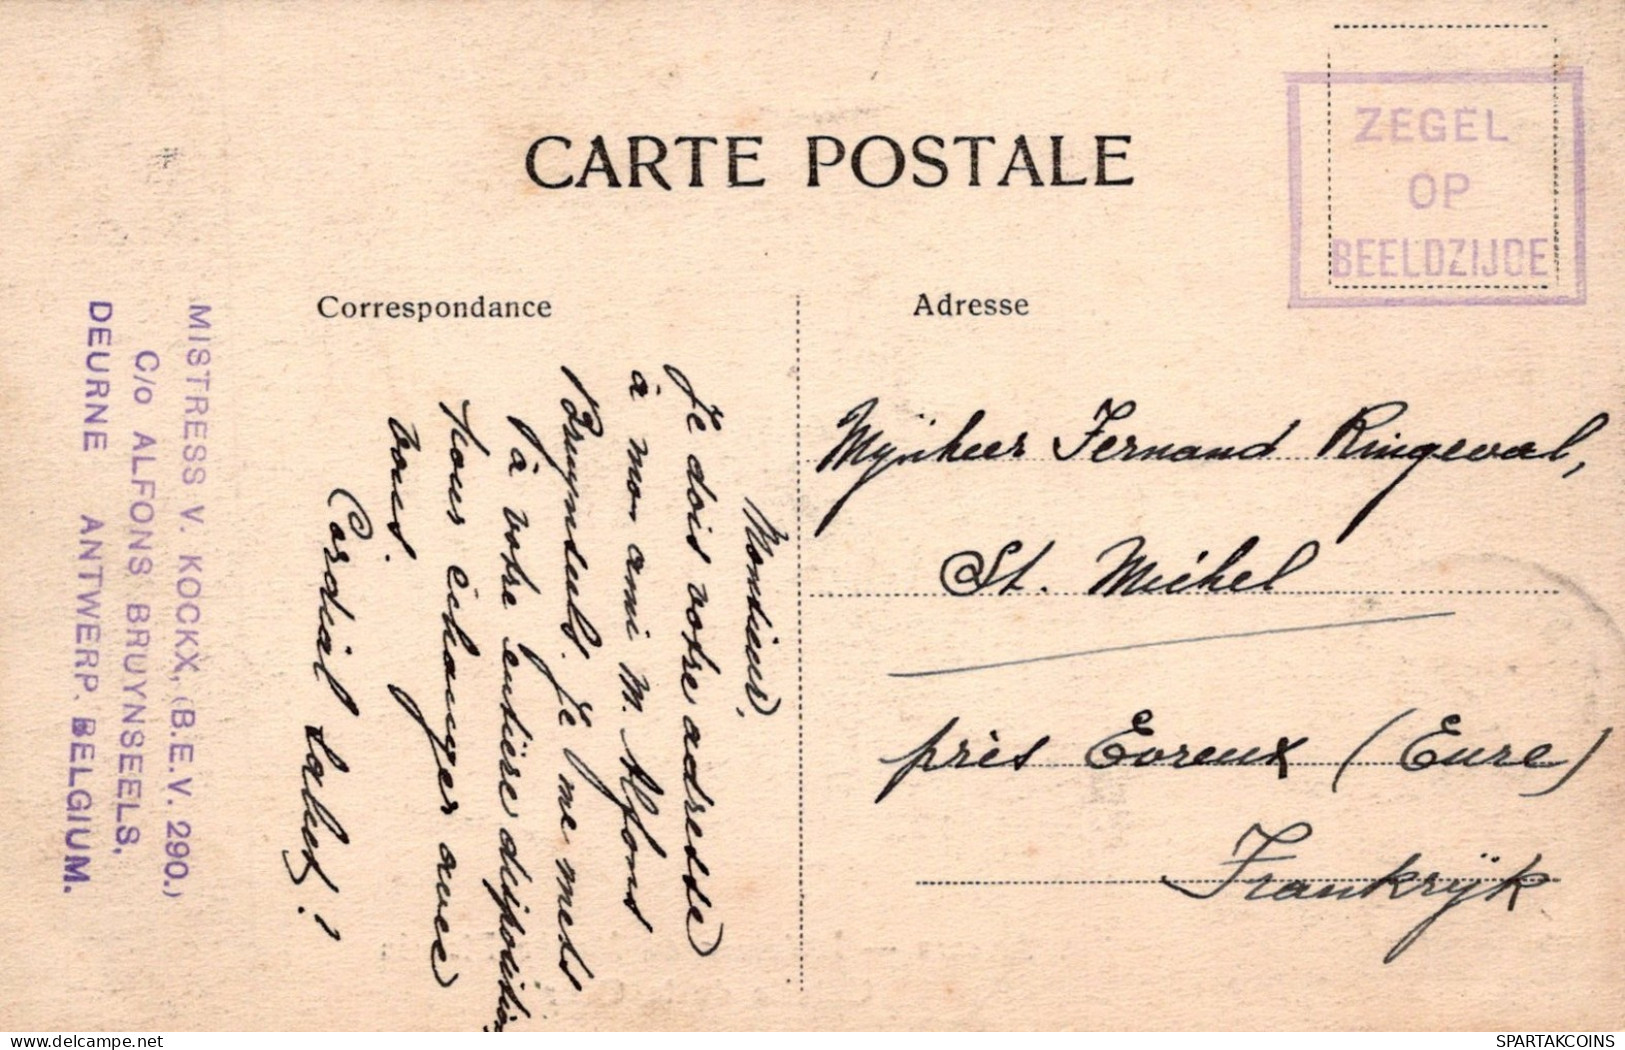 CARTE POSTALE
ZEGEL
OP
BEELDZIJDE
Correspondance
Adresse
MISTRESS V. KOCKX, (B.E.V. 290.)
C/o ALFONS BRUYNSEELS,
DEURNE ANTWERP. BELGIUM.
Monsieur,
Je dois votre adresse
à mon ami M. Alfons
Bruynseels. Je me mets
à votre entière disposition
pour échanger avec
vous.
Cordial salut!
Mijnheer Fernand Ringeval,
St. Michel
près Evreux (Eure)
Frankrijk
delcampe.net
SPARTAKCOINS